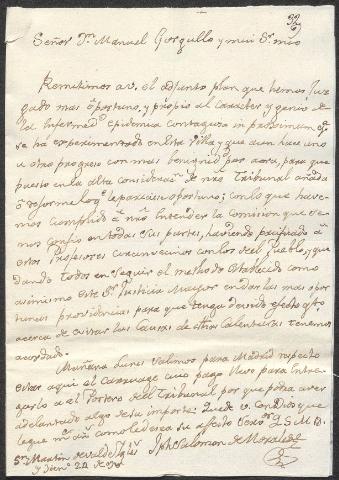 32
Señor Dn. Manuel Gorgullo y mui Sr. mio
Remitimos a v. el adjunto plan que hemos juz
gado mas oportuno, y propio al caracter y genio de
la Infermedd. epidemica contagiosa in proximum, qe
se ha experimentado en esta Villa y que aun hace uno
u otro progreso con mas benignidad por aora, para que
puesto en la alta consideracn. de nro Tribunal añada
o reforme lo qe. le pareciere oportuno; con lo que have-
mos cumplido a nro entender la Comision que se
nos confio en todas sus partes, haviendo pacificado a
estos Profesores circunvecinos con los del Pueblo, y que
dando todos en seguir el methodo establecido como
asimismo este Sr. Justicia Mayor en dar las mas opor
tunas providencias para que tenga devido efecto qto.
acerca de evitar las causas de dthas Calenturas tenemos
acordado.
Mañana Lunes salimos para Madrid respecto
estar aqui el carruage cuio pago llevo para entre
garlo a el Portero del Tribunal por que podra aver
adelantado algo de su importe. Quede v. con Dios que
le gue. ms. as. como le desea su afecto servor. Q. S. M. B.
Sn. Martin de Valdeiglesias
y Dizre. 20 de Jph Salomon de Morales